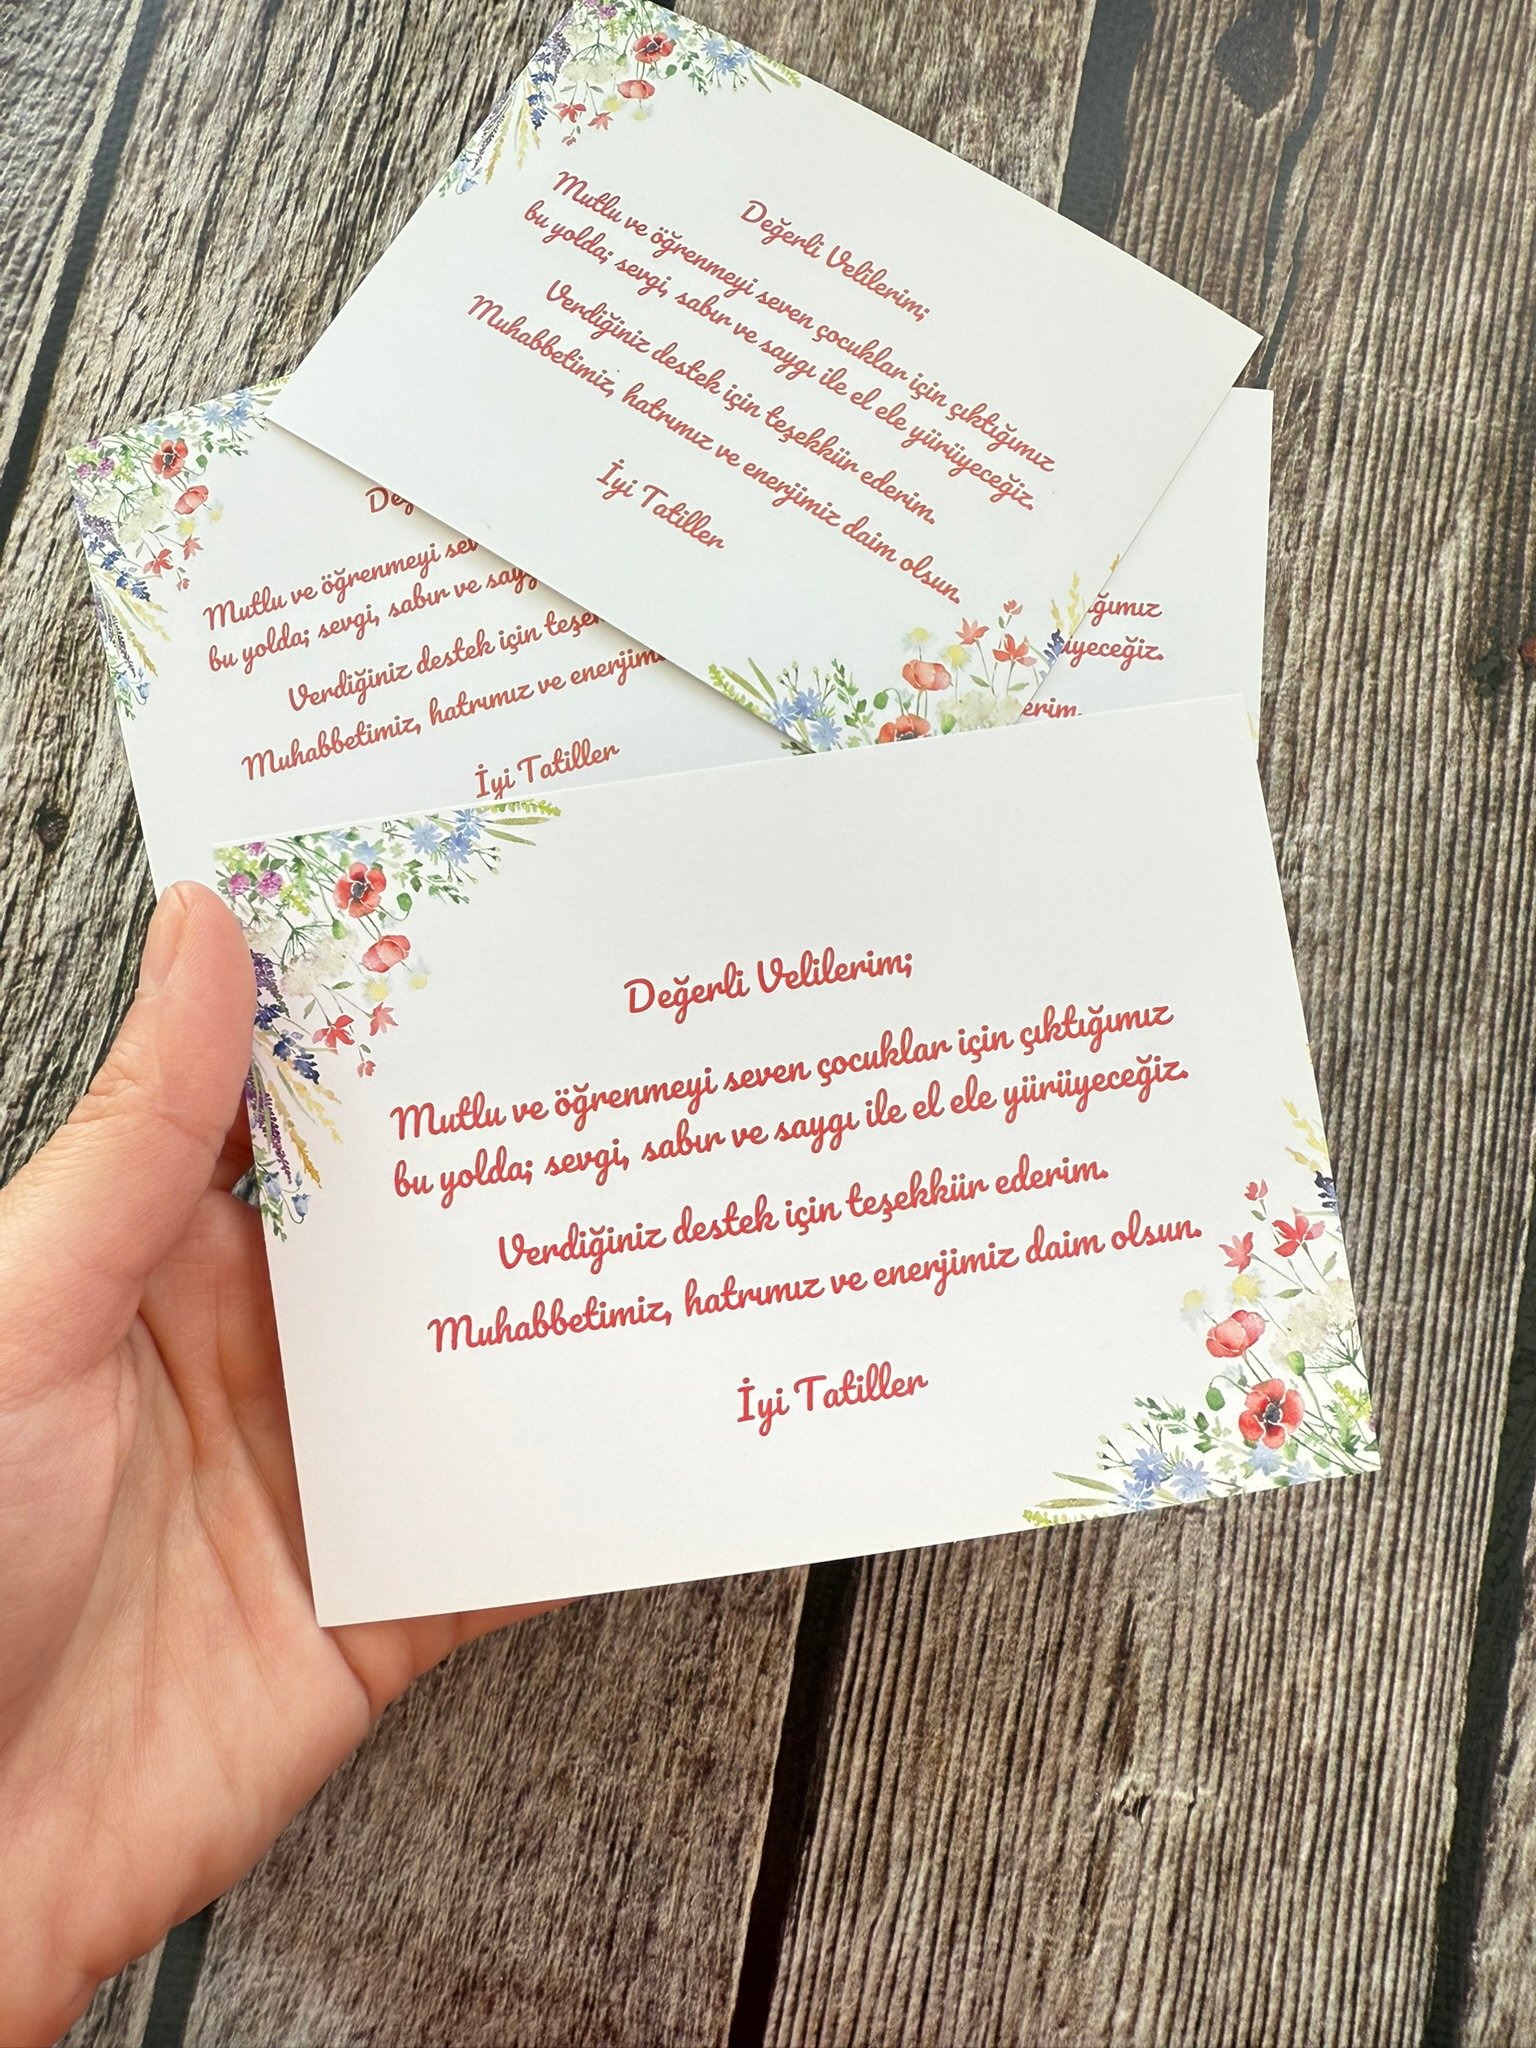 Değerli Velilerim;
Mutlu ve öğrenmeyi seven çocuklar için çıktığımız
bu yolda; sevgi, sabır ve saygı ile el ele yürüyeceğiz.
Verdiğiniz destek için teşekkür ederim.
Muhabbetimiz, hatrımız ve enerjimiz daim olsun.
İyi Tatiller
Mutlu ve öğrenmeyi
bu yolda; sevgi, sabır ve
Verdiğiniz destek için
Muhabbetimiz, hatrımız ve
İyi Tatiller
Değerli Velilerim;
Mutlu ve öğrenmeyi seven çocuklar için çıktığımız
bu yolda; sevgi, sabır ve saygı ile el ele yürüyeceğiz.
Verdiğiniz destek için teşekkür ederim.
Muhabbetimiz, hatrımız ve enerjimiz daim olsun.
İyi Tatiller